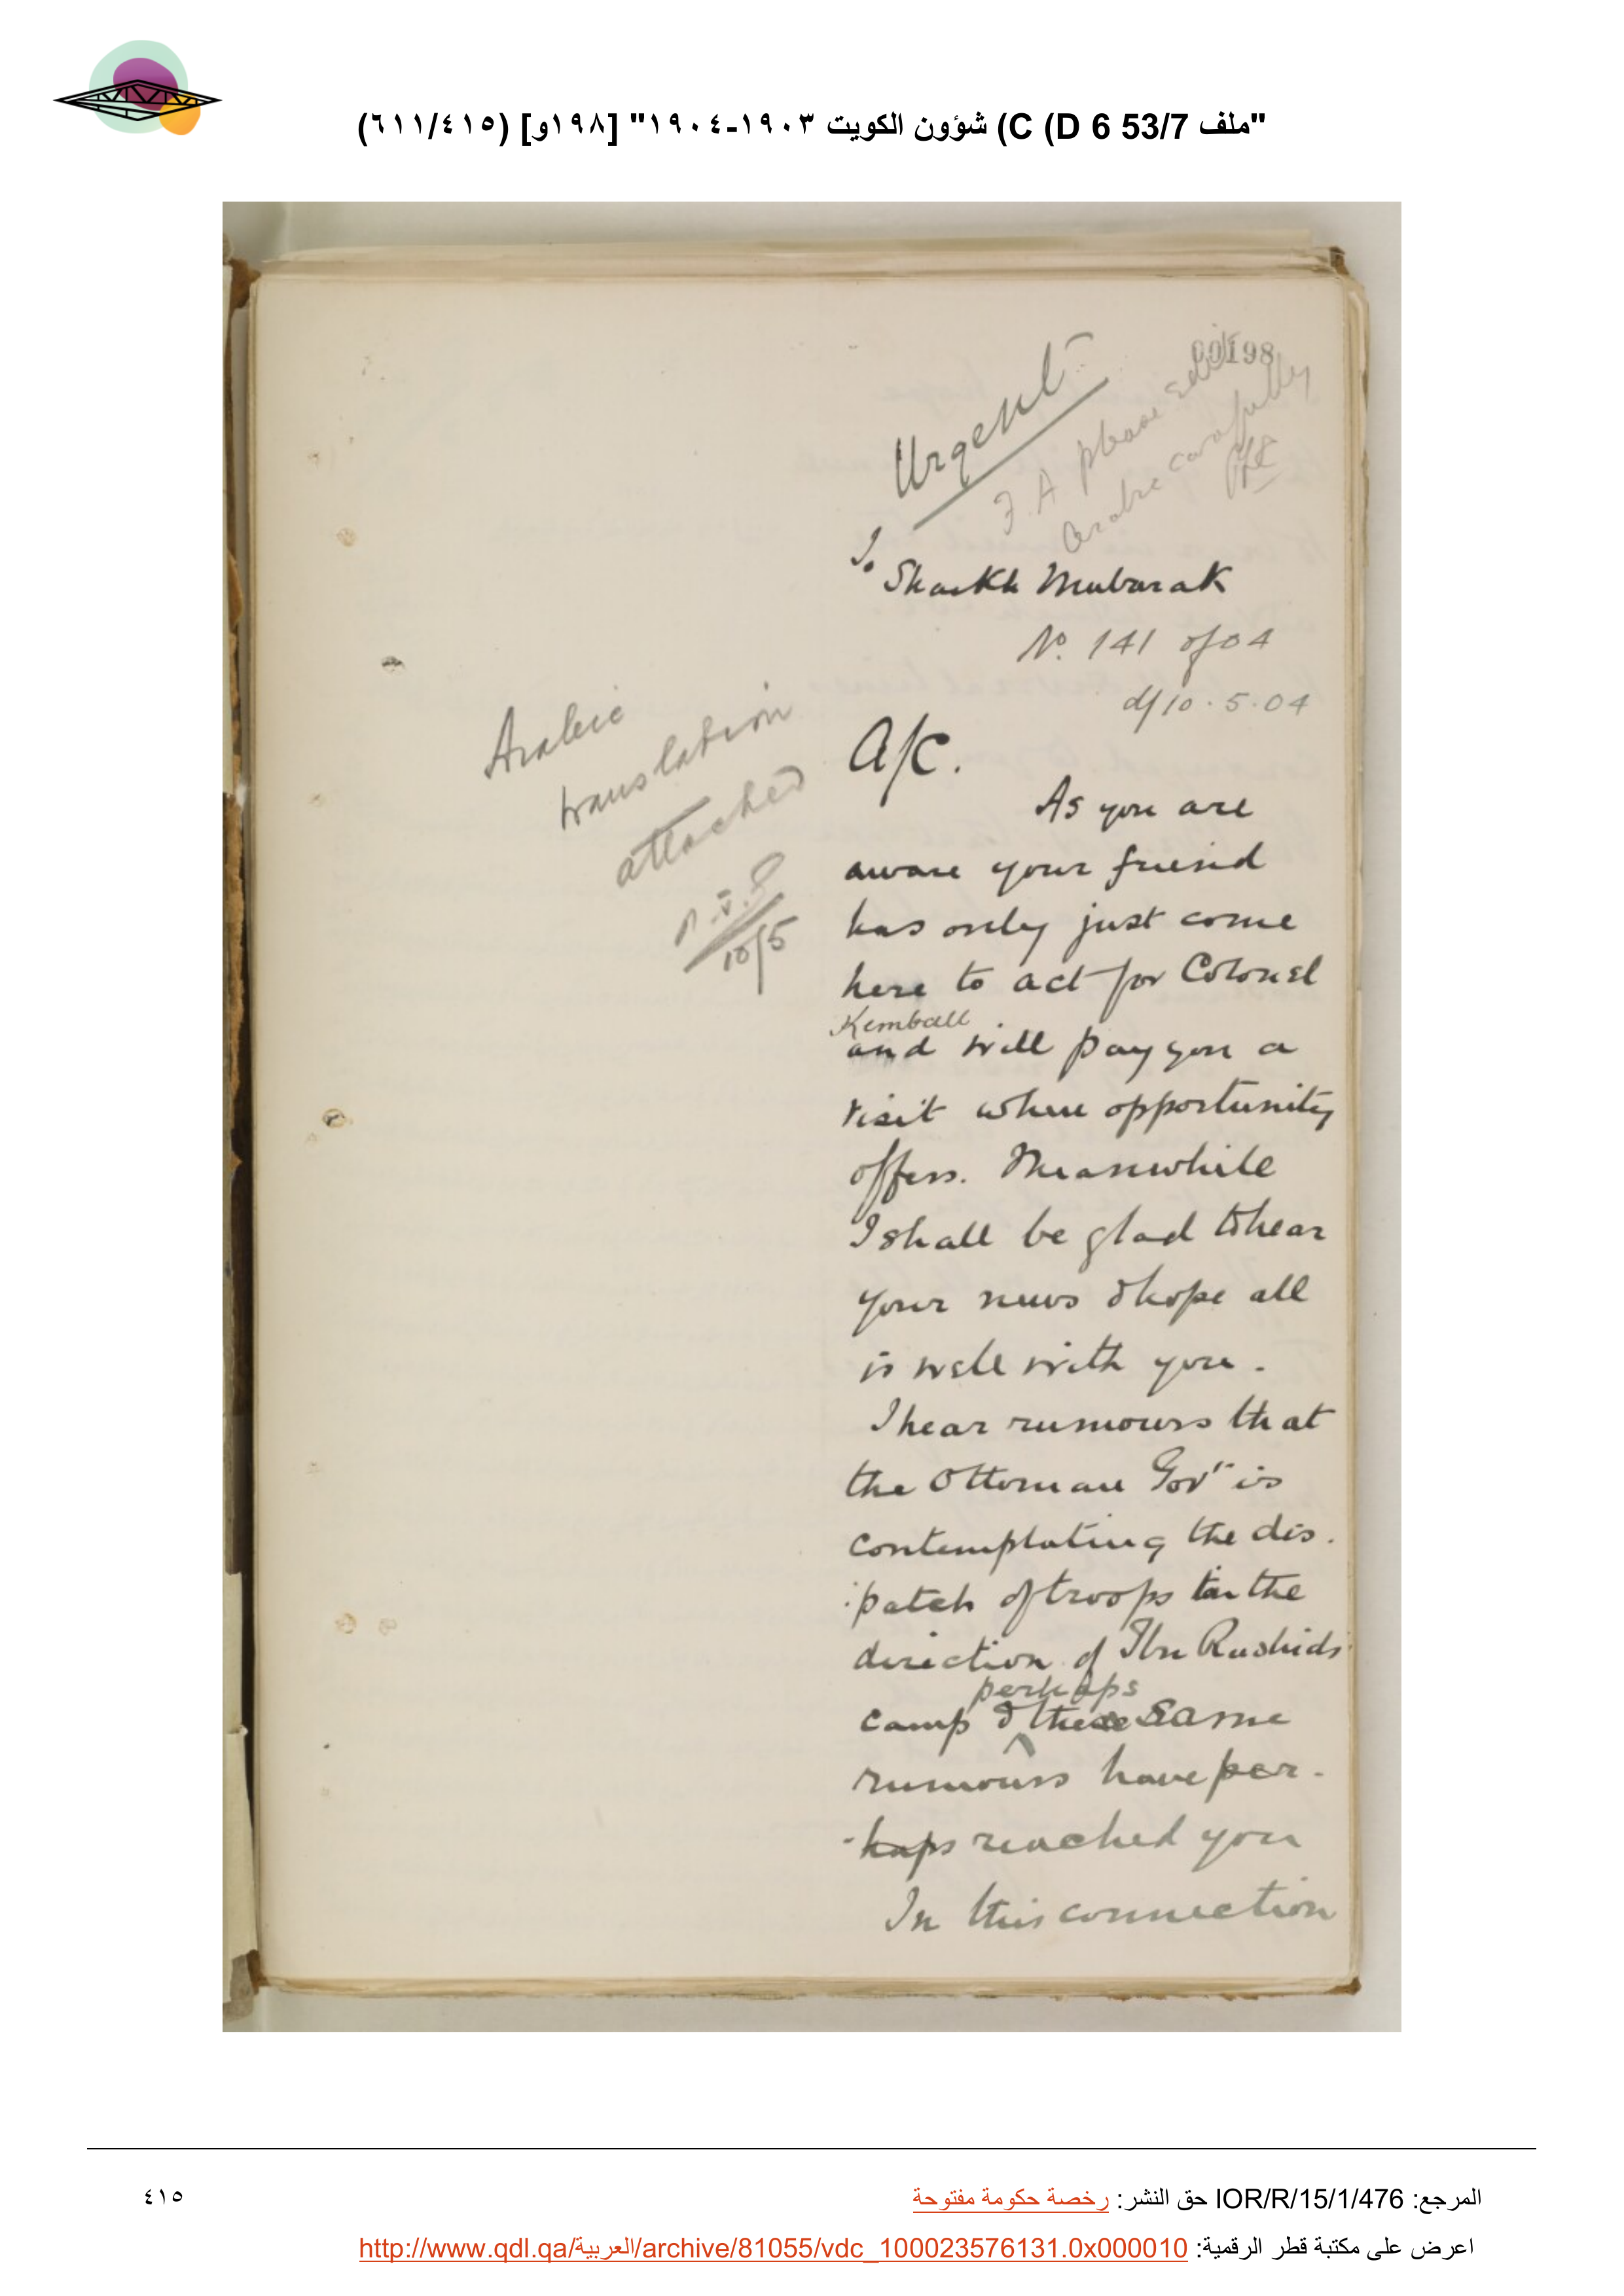 "ملف 53/7 C (D 6) شؤون الكويت ١٩٠٣-١٩٠٤" [١٩٨و] (٦١١/٤١٥)
00198
Urgent
F. A please edit
Arabic carefully
To
Shaikh Mubarak
No. 141 of 04
d/10.5.04
Arabic
translation
attached
10/5
A/C.
As you are
aware your friend
has only just come
here to act for Colonel
Kemball
and will pay you a
visit when opportunity
offers. Meanwhile
I shall be glad to hear
your news & hope all
is well with you.
I hear rumours that
the Ottoman Govt is
contemplating the dis-
-patch of troops in the
direction of Ibn Rashids
perhaps
camp & these same
rumours have per-
-haps reached you
In this connection
المرجع: IOR/R/15/1/476 حق النشر: رخصة حكومة مفتوحة
٤١٥
اعرض على مكتبة قطر الرقمية: http://www.qdl.qa/العربية/archive/81055/vdc_100023576131.0x000010